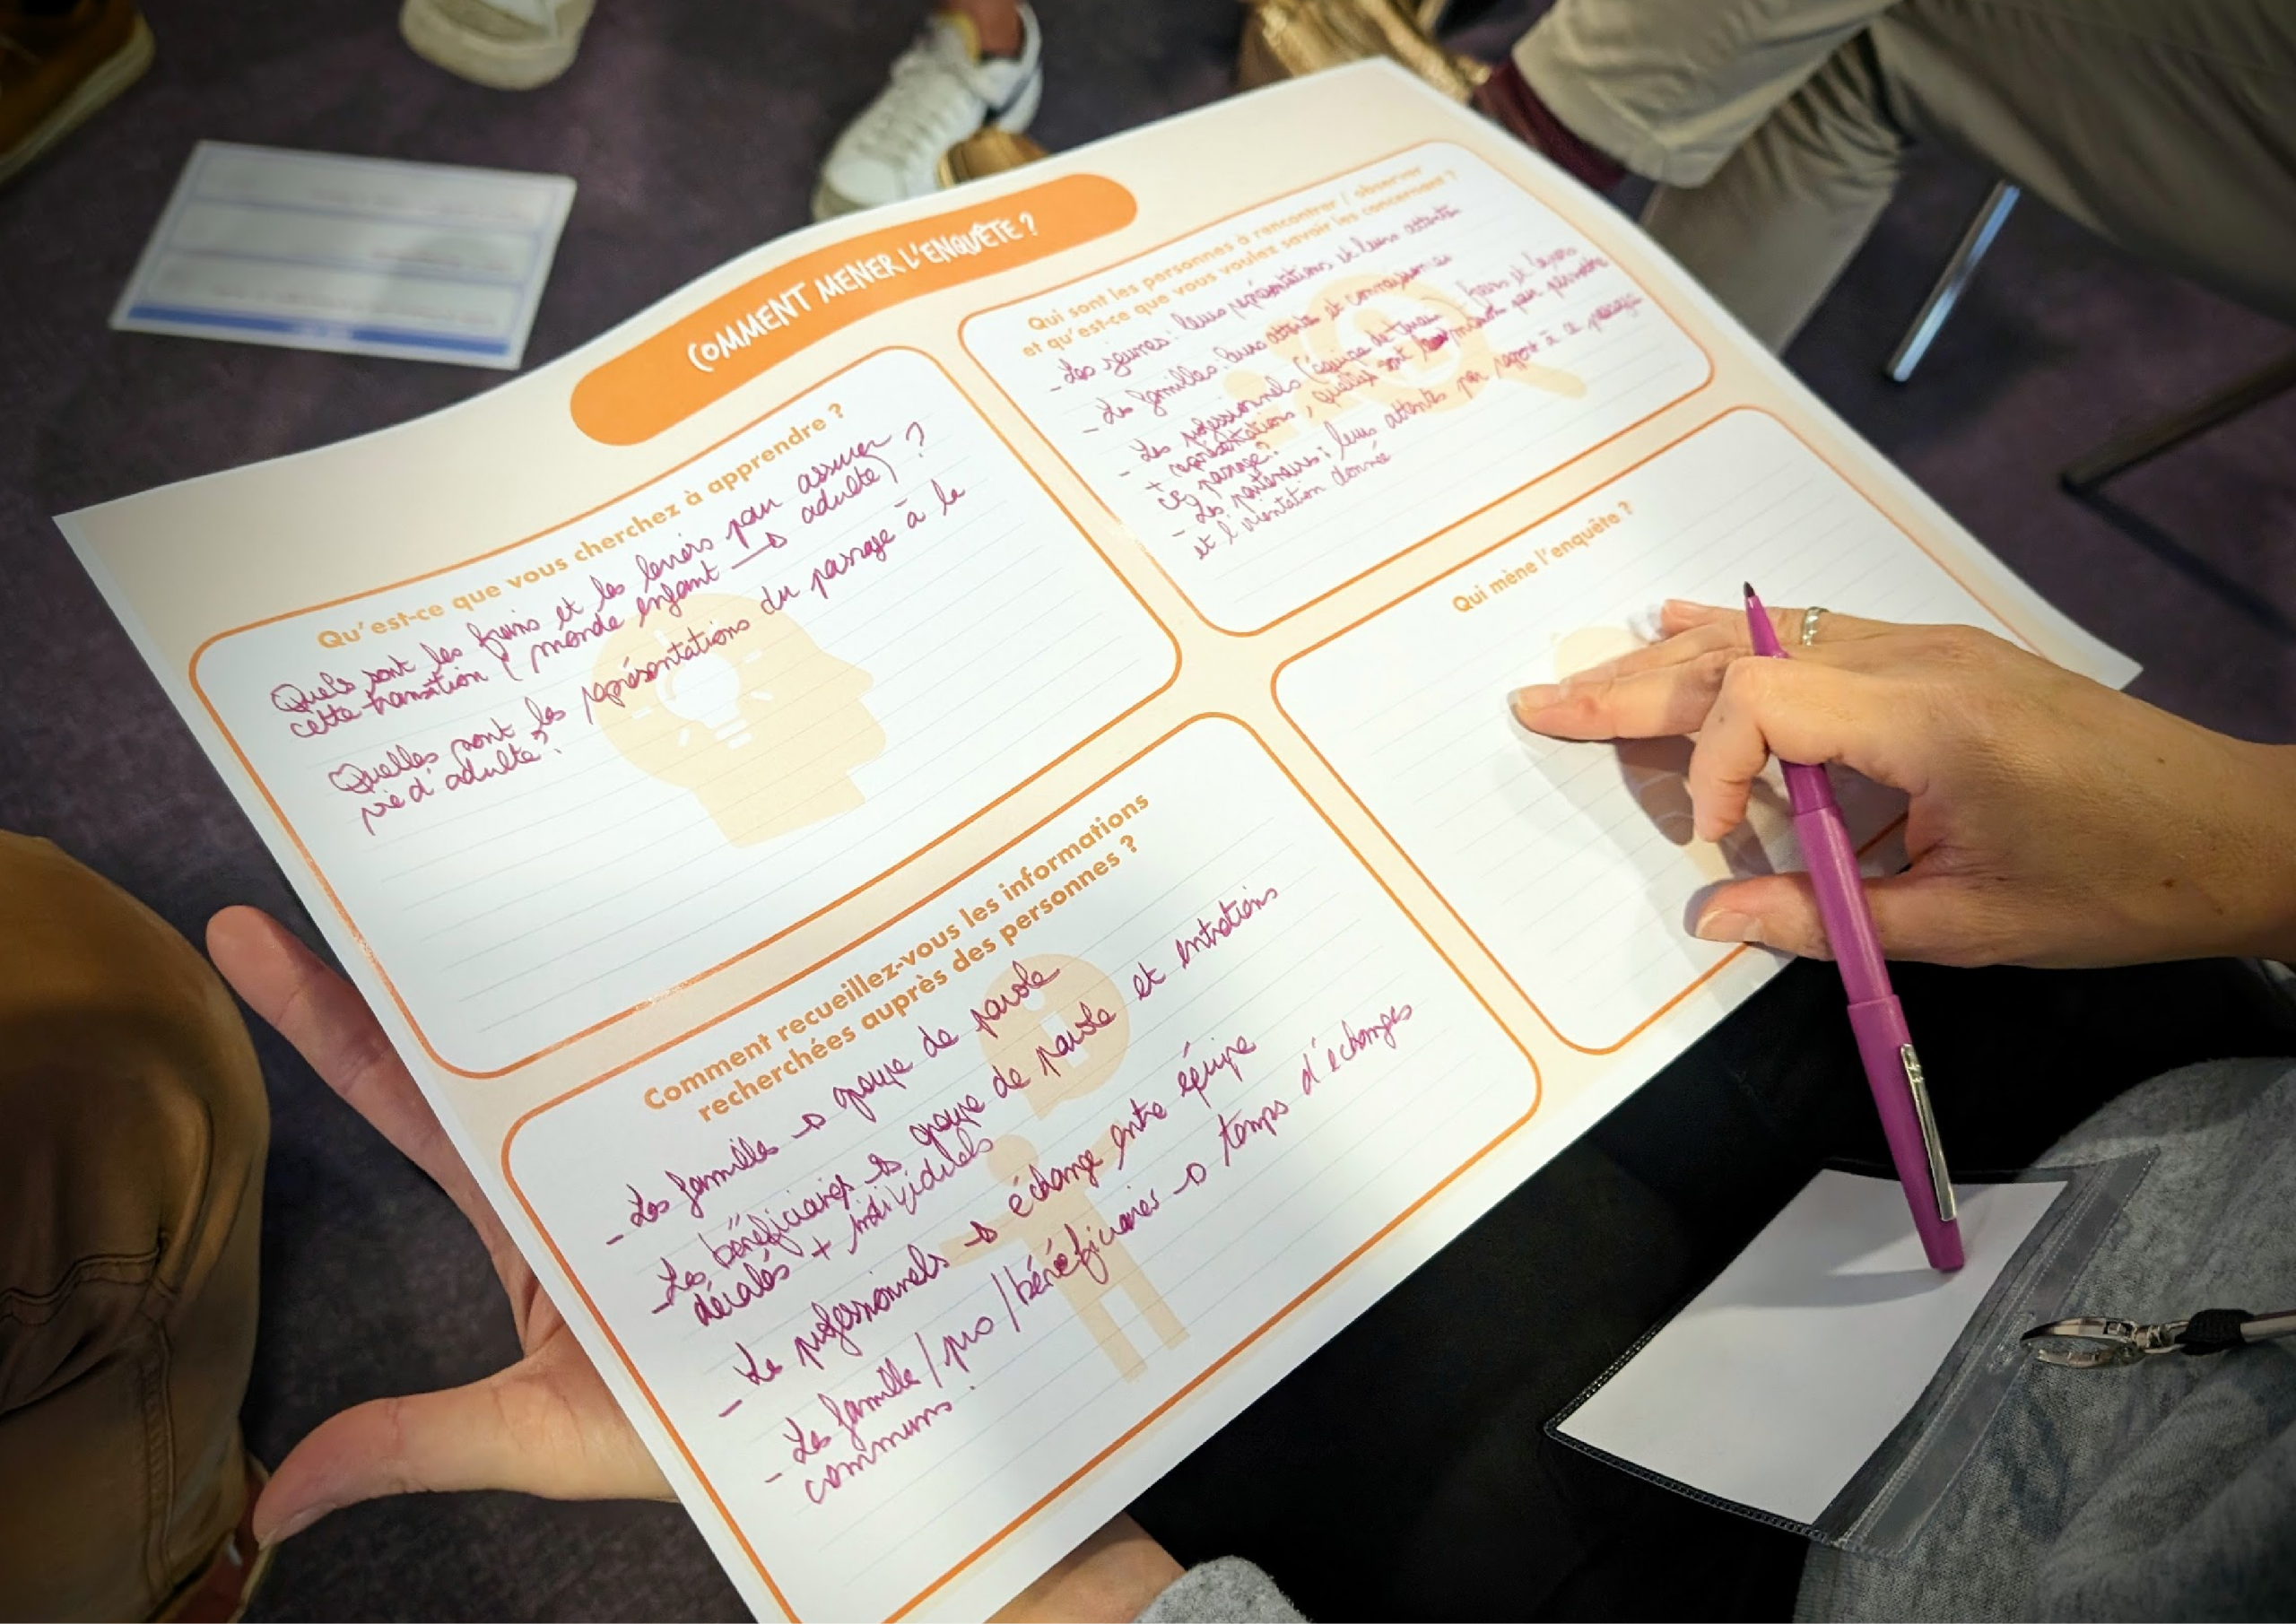 COMMENT MENER L'ENQUÊTE ?
Qu'est-ce que vous cherchez à apprendre ?
Quels sont les freins et les leviers pour assurer
cette transition (monde enfant → adulte) ?
Quelles sont les représentations du passage à la
vie d'adulte ?
Qui sont les personnes à rencontrer / observer
et qu'est-ce que vous voulez savoir les concernant ?
- Les jeunes : leurs représentations et leurs attentes
- Les familles : leurs attentes et connaissances
- Les professionnels (équipe de travail) freins et leviers
+ représentations, quelles sont les moyens pour permettre
ce passage ?
- Les partenaires : leurs attentes par rapport à ce passage
et l'orientation donnée
Comment recueillez-vous les informations
recherchées auprès des personnes ?
- Les familles → groupe de parole
- Les bénéficiaires → groupe de parole et entretiens
décalés + individuels
- Les professionnels → échange entre équipe
- Les famille / pro / bénéficiaires → temps d'échanges
communs.
Qui mène l'enquête ?